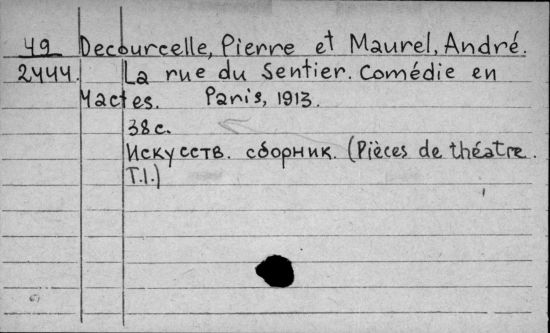 49 Decourcelle, Pierre et Maurel, André.
2444. La rue du Sentier. Comédie en
4actes. Paris, 1913.
38с.
Искусств. сборник. (Pièces de théatre.
T.I.)